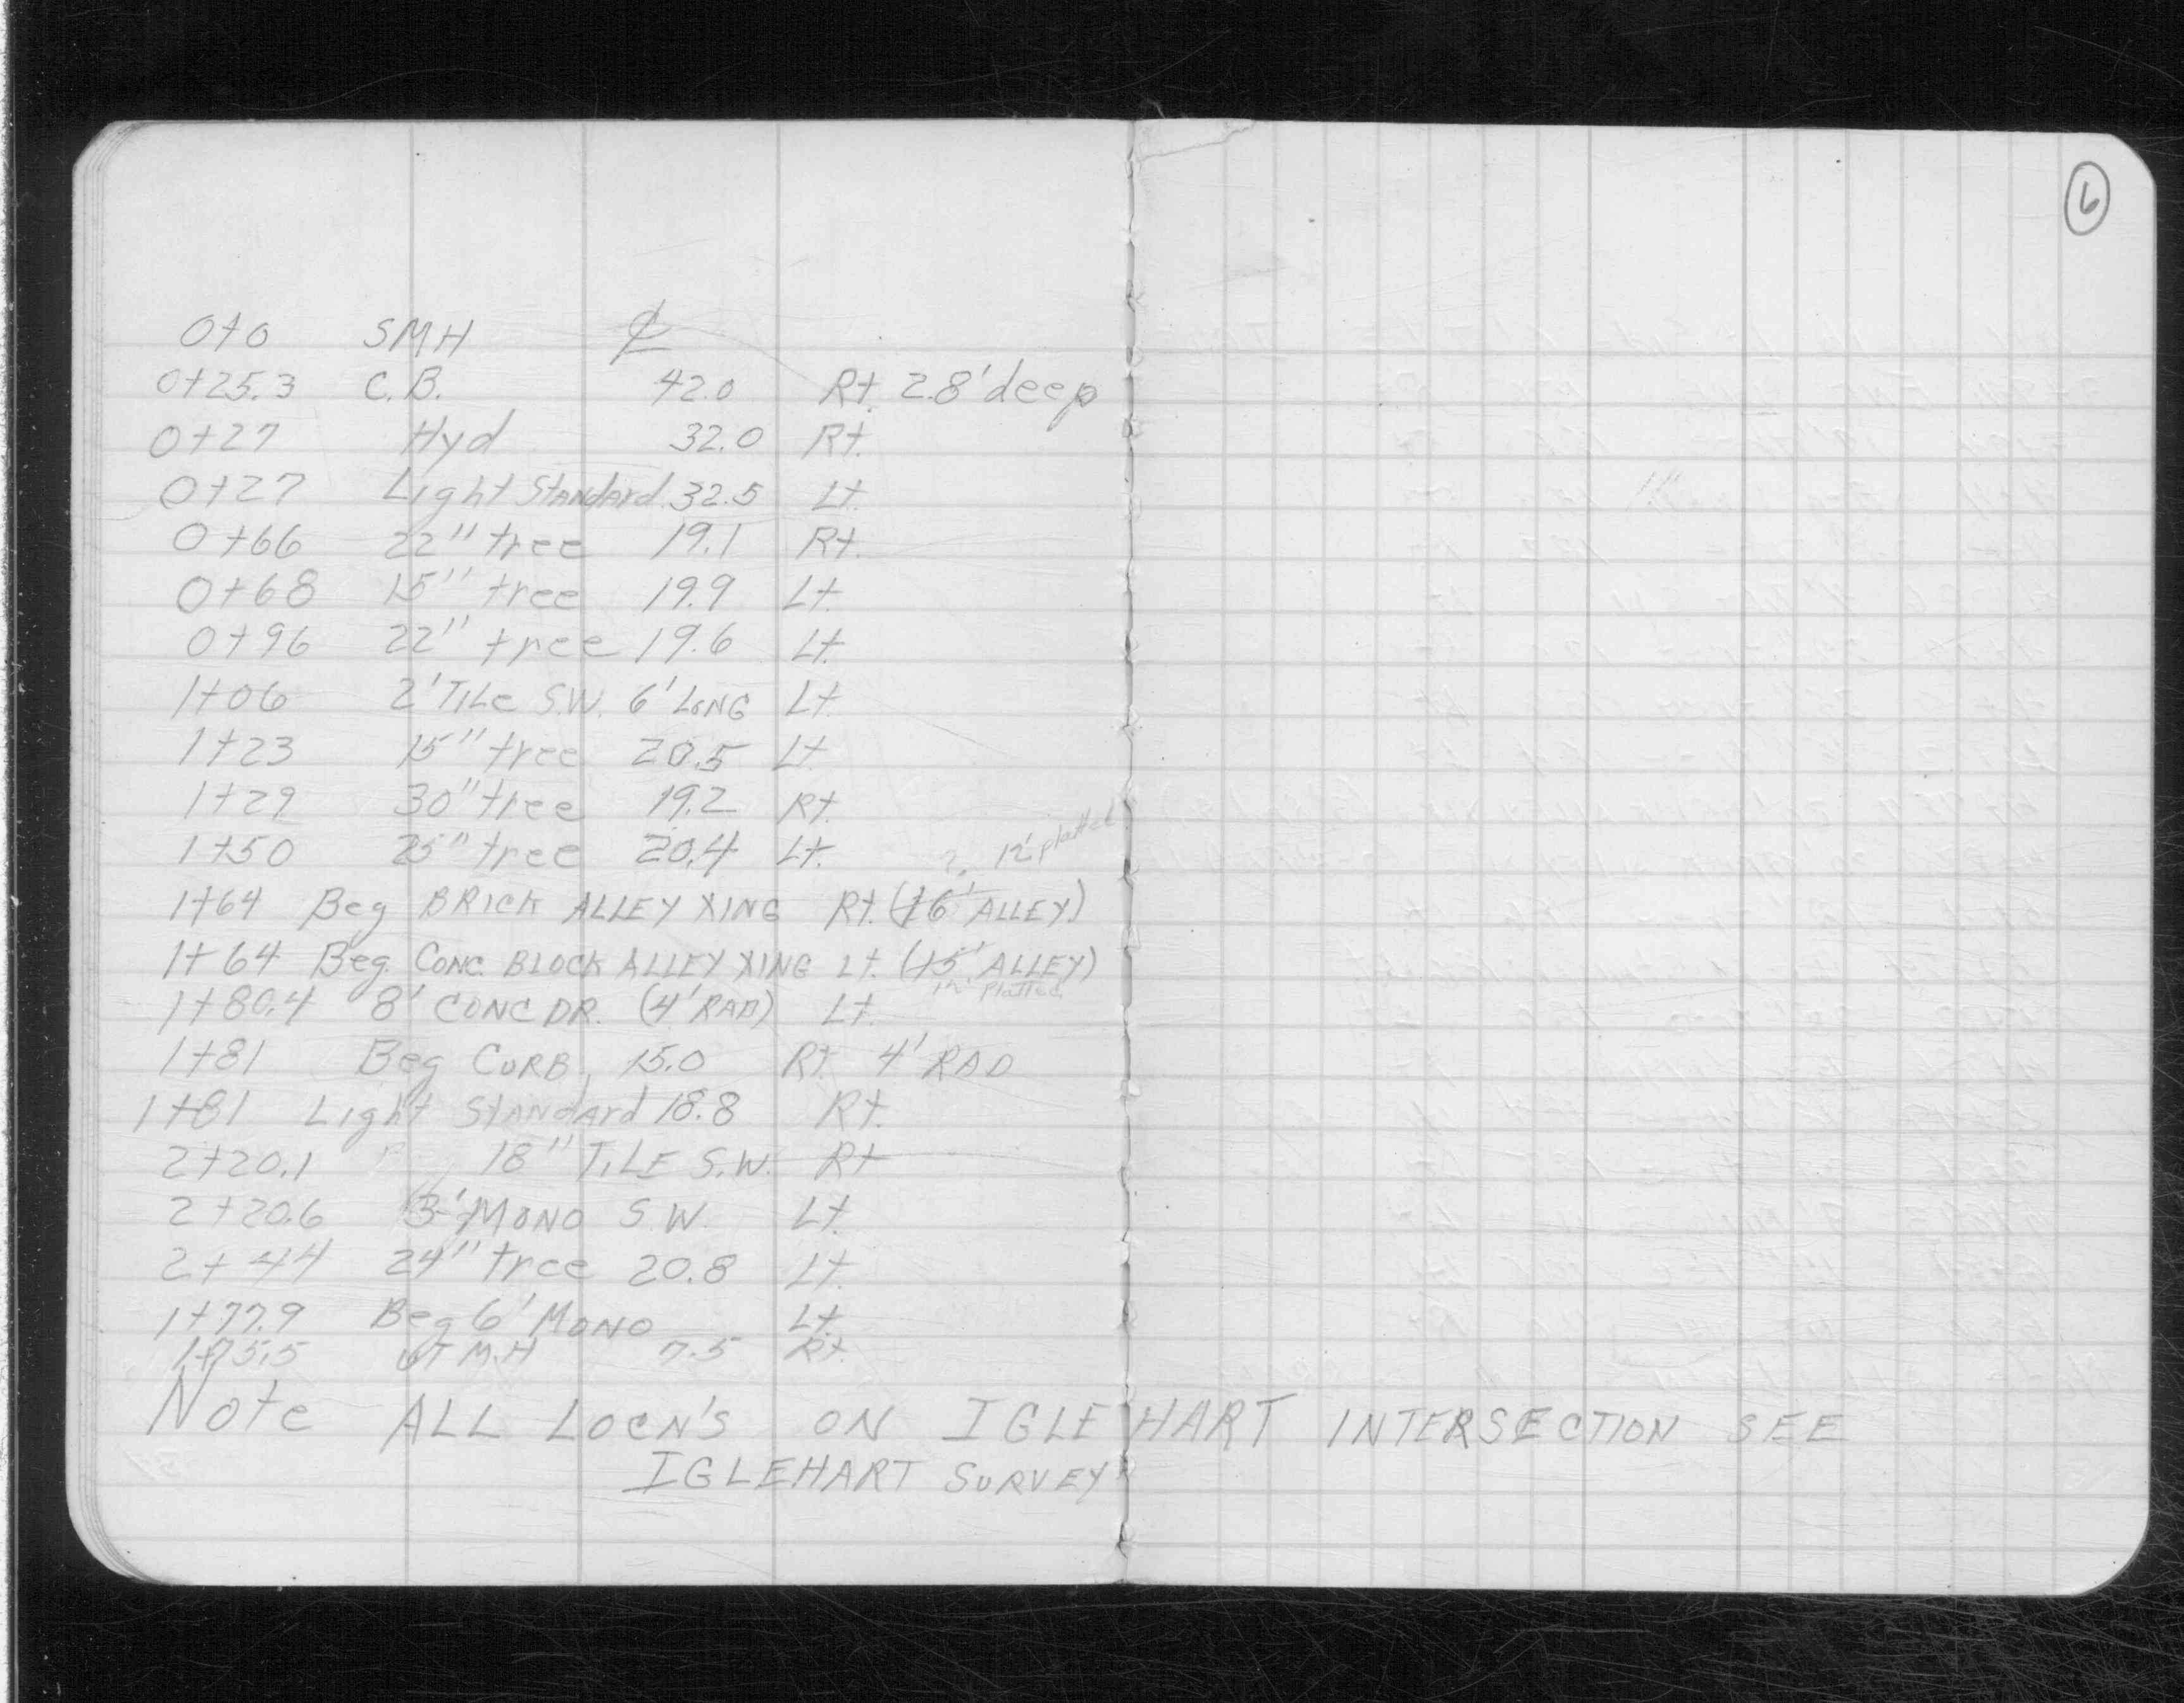 6
0+0 SMH ℄
0+25.3 C.B. 42.0 Rt. 2.8' deep
0+27 Hyd 32.0 Rt.
0+27 Light Standard 32.5 Lt.
0+66 22" tree 19.1 Rt.
0+68 15" tree 19.9 Lt.
0+96 22" tree 19.6 Lt.
1+06 2' TILe S.W. 6' LONG Lt.
1+23 15" tree 20.5 Lt.
1+29 30" tree 19.2 Rt.
1+50 25" tree 20.4 Lt.
?, 12' platted
1+64 Beg BRICK ALLEY XING Rt. (16' ALLEY)
1+64 Beg. CONC. BLOCK ALLEY XING Lt. (15' ALLEY)
12' Platted
1+80.4 8' CONC DR. (4' RAD) Lt.
1+81 Beg CURB, 15.0 Rt. 4' RAD
1+81 Light Standard 18.8 Rt.
2+20.1 18" TILE S.W. Rt
2+20.6 3' MONO S.W. Lt.
2+44 24" tree 20.8 Lt.
1+77.9 Beg 6' MONO Lt.
1+75.5 M.H 7.5 Rt.
Note ALL LOCN'S ON IGLEHART INTERSECTION SEE
IGLEHART SURVEY